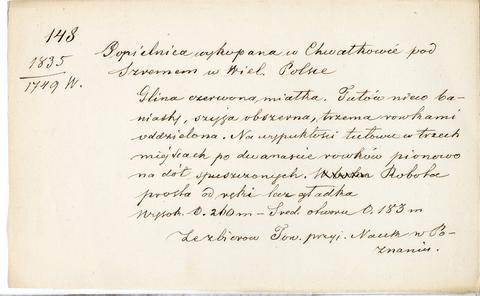 148
1835
1749 W.
Popielnica wykopana w Chwałkowie pod
Szremem w Wiel. Polsce
Glina czerwona, miałka. Tułów nieco ba-
niasty, szyja obszerna, trzema rowkami
oddzielona. Na wypukłości tułowe w trzech
miejscach po dwanaście rowków pionowo
na dół spuszczonych. Robota
prosta od ręki lecz gładka
Wysok. 0.260 m – Śred. otworu 0.183 m
Ze zbiorów Tow. przyj. Nauk w Po-
znaniu.